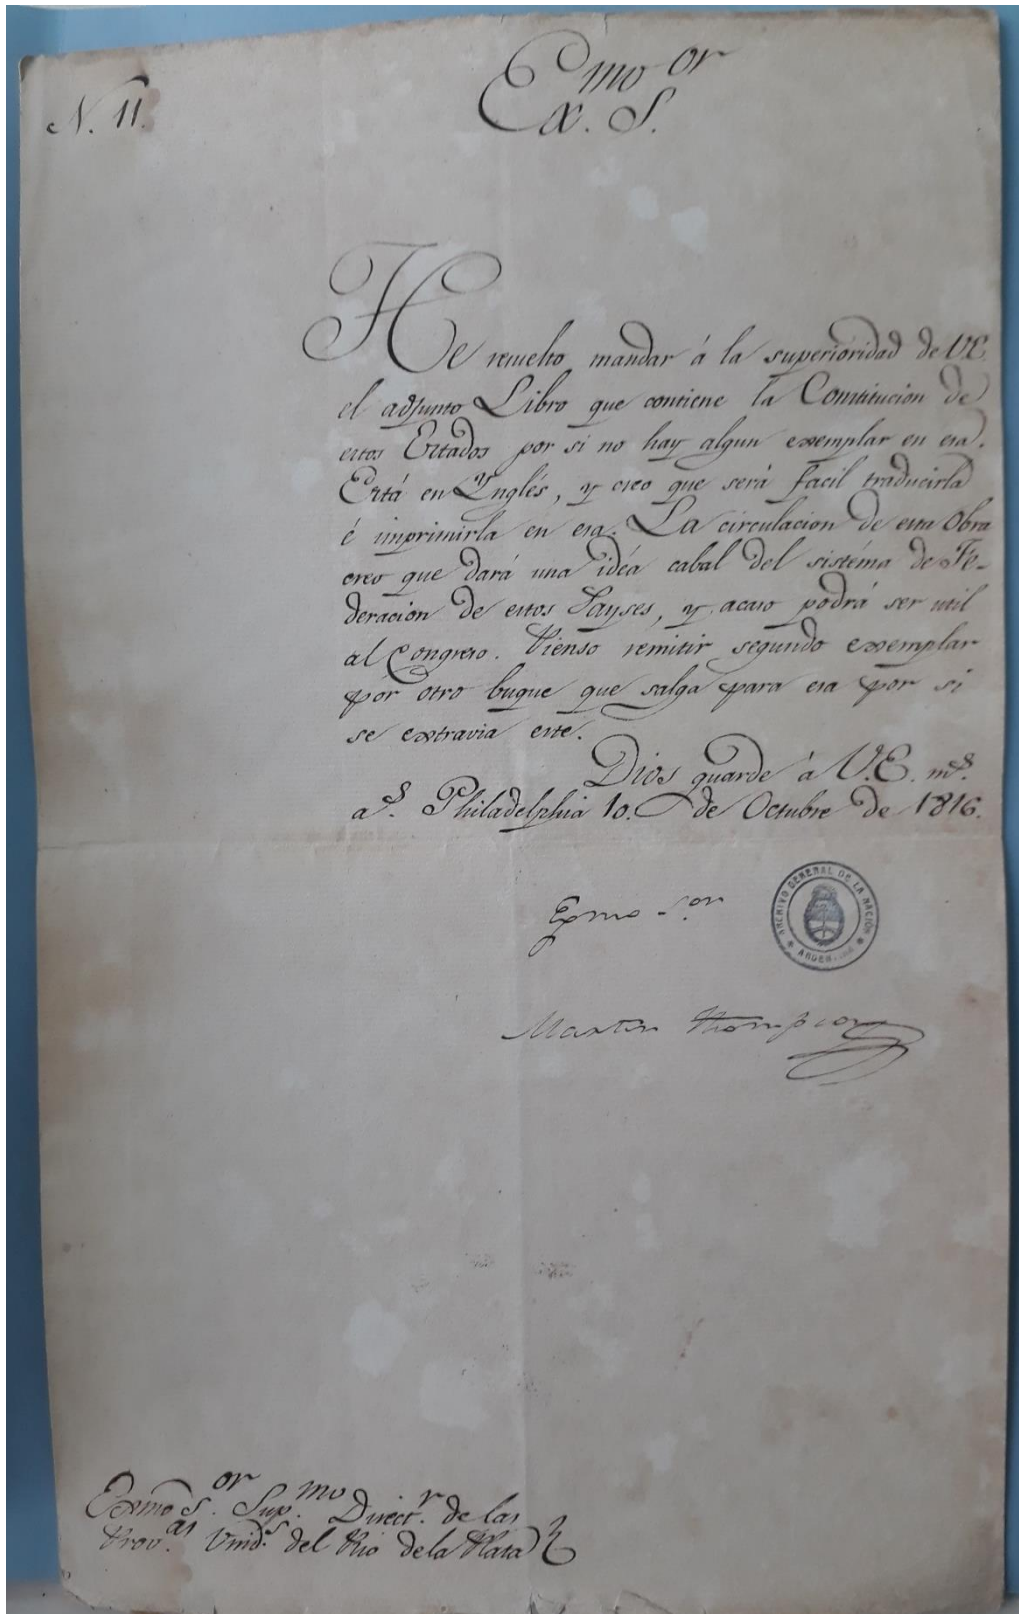 N. 11.
Ex.mo S.or
He resuelto mandar á la superioridad de VE.
el adjunto Libro que contiene la Constitucion de
estos Estados por si no hay algun exemplar en esa.
Está en Ynglés, y creo que será facil traducirla
é imprimirla en esa. La circulacion de esta Obra
creo que dará una idéa cabal del sistéma de Fe-
deracion de estos Payses, y acaso podrá ser util
al Congreso. Pienso remitir segundo exemplar
por otro buque que salga para esa por si
se extravia este.
Dios guarde á V.E. m.s
a.s Philadelphia 10. de Octubre de 1816.
Exmo S.or
ARCHIVO GENERAL DE LA NACIÓN
ARGENTINA
Martin Thompson
Exmo S.or Sup.mo Direct.r de las
Prov.as Unid.s del Rio de la Plata